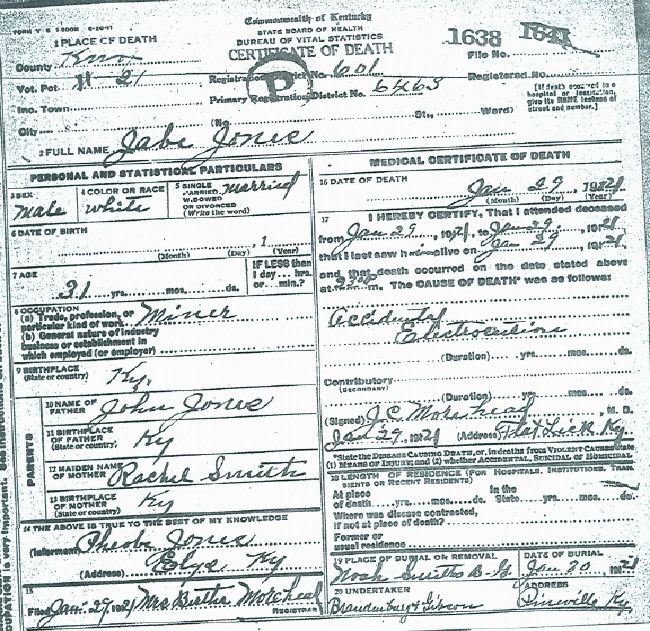 Commonwealth of Kentucky
STATE BOARD OF HEALTH
BUREAU OF VITAL STATISTICS
CERTIFICATE OF DEATH
1 PLACE OF DEATH
County
Vot. Pct. 11 21
Inc. Town
City
Registration District No. 601
Primary Registration District No. 6463
(No. St., Ward)
File No. 1638
Registered No.
(If death occurred in a hospital or institution, give its NAME instead of street and number.)
2 FULL NAME Jabe Jones
PERSONAL AND STATISTICAL PARTICULARS
3 SEX
male
4 COLOR OR RACE
white
5 SINGLE, MARRIED, WIDOWED OR DIVORCED
(Write the word)
married
6 DATE OF BIRTH
, 1
(Month) (Day) (Year)
7 AGE
31 yrs. mos. ds.
IF LESS than
1 day hrs.
or min.?
8 OCCUPATION
(a) Trade, profession, or
particular kind of work Miner
(b) General nature of industry
business or establishment in
which employed (or employer)
9 BIRTHPLACE
(State or country)
Ky.
PARENTS
10 NAME OF
FATHER John Jones
11 BIRTHPLACE
OF FATHER
(State or country) Ky
12 MAIDEN NAME
OF MOTHER Rachel Smith
13 BIRTHPLACE
OF MOTHER
(State or country) Ky
14 THE ABOVE IS TRUE TO THE BEST OF MY KNOWLEDGE
(Informant) Jones
(Address) Elys Ky
15
Filed Jan. 29, 1921 Mrs Bertha Morehead
REGISTRAR
MEDICAL CERTIFICATE OF DEATH
16 DATE OF DEATH
Jan 29, 1921
(Month) (Day) (Year)
17 I HEREBY CERTIFY, That I attended deceased
from Jan 29, 1921, to Jan 29, 1921
that I last saw him alive on Jan 29, 1921,
and that death occurred on the date stated above
at m. The CAUSE OF DEATH* was as follows:
Accidental
Electrocution
(Duration) yrs. mos. ds.
Contributory
(SECONDARY)
(Duration) yrs. mos. ds.
(Signed) J.C. Morehead, M. D.
Jan 29, 1921 (Address) Flat Lick Ky
*State the DISEASE CAUSING DEATH, or, in deaths from VIOLENT CAUSES state
(1) MEANS OF INJURY; and (2) whether ACCIDENTAL, SUICIDAL or HOMICIDAL.
18 LENGTH OF RESIDENCE (FOR HOSPITALS, INSTITUTIONS, TRANSIENTS OR RECENT RESIDENTS)
At place
of death yrs. mos. ds.
In the
State yrs. mos. ds.
Where was disease contracted,
if not at place of death?
Former or
usual residence
19 PLACE OF BURIAL OR REMOVAL
Noah Smiths B-G
DATE OF BURIAL
Jan 30, 1921
20 UNDERTAKER
Brandenburg & Gibson
ADDRESS
Pineville Ky